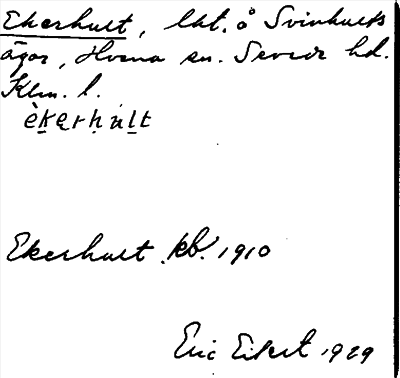 Ekerhult, lht. å Svinhults
ägor, Hvena sn. Sevede hd.
Klm. l.
èkerhult
Ekerhult kb. 1910
Eric Eikert 1929